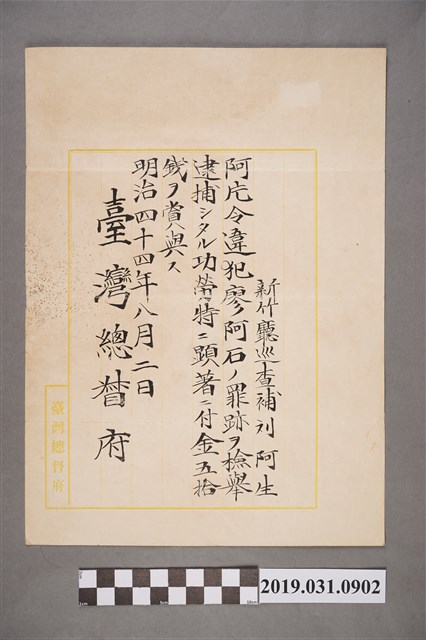 新竹廳巡查補 刘阿生
阿片令違犯廖阿石ノ罪跡ヲ檢舉
逮捕シタル功勞特ニ顕著ニ付金五拾
銭ヲ賞與ス
明治四十四年八月二日
臺灣總督府
臺灣總督府
2019.031.0902